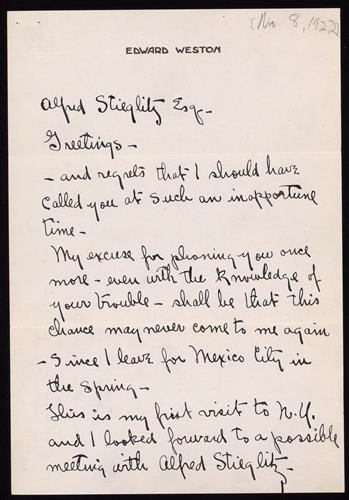 (Nov. 8, 1922)
EDWARD WESTON
Alfred Stieglitz Esq-
Greetings-
- and regrets that I should have
called you at such an inopportune
time-
My excuse for phoning you once
more - even with the knowledge of
your trouble - shall be that this
chance may never come to me again
- Since I leave for Mexico City in
the Spring-
This is my first visit to N.Y.
and I looked forward to a possible
meeting with Alfred Stieglitz-